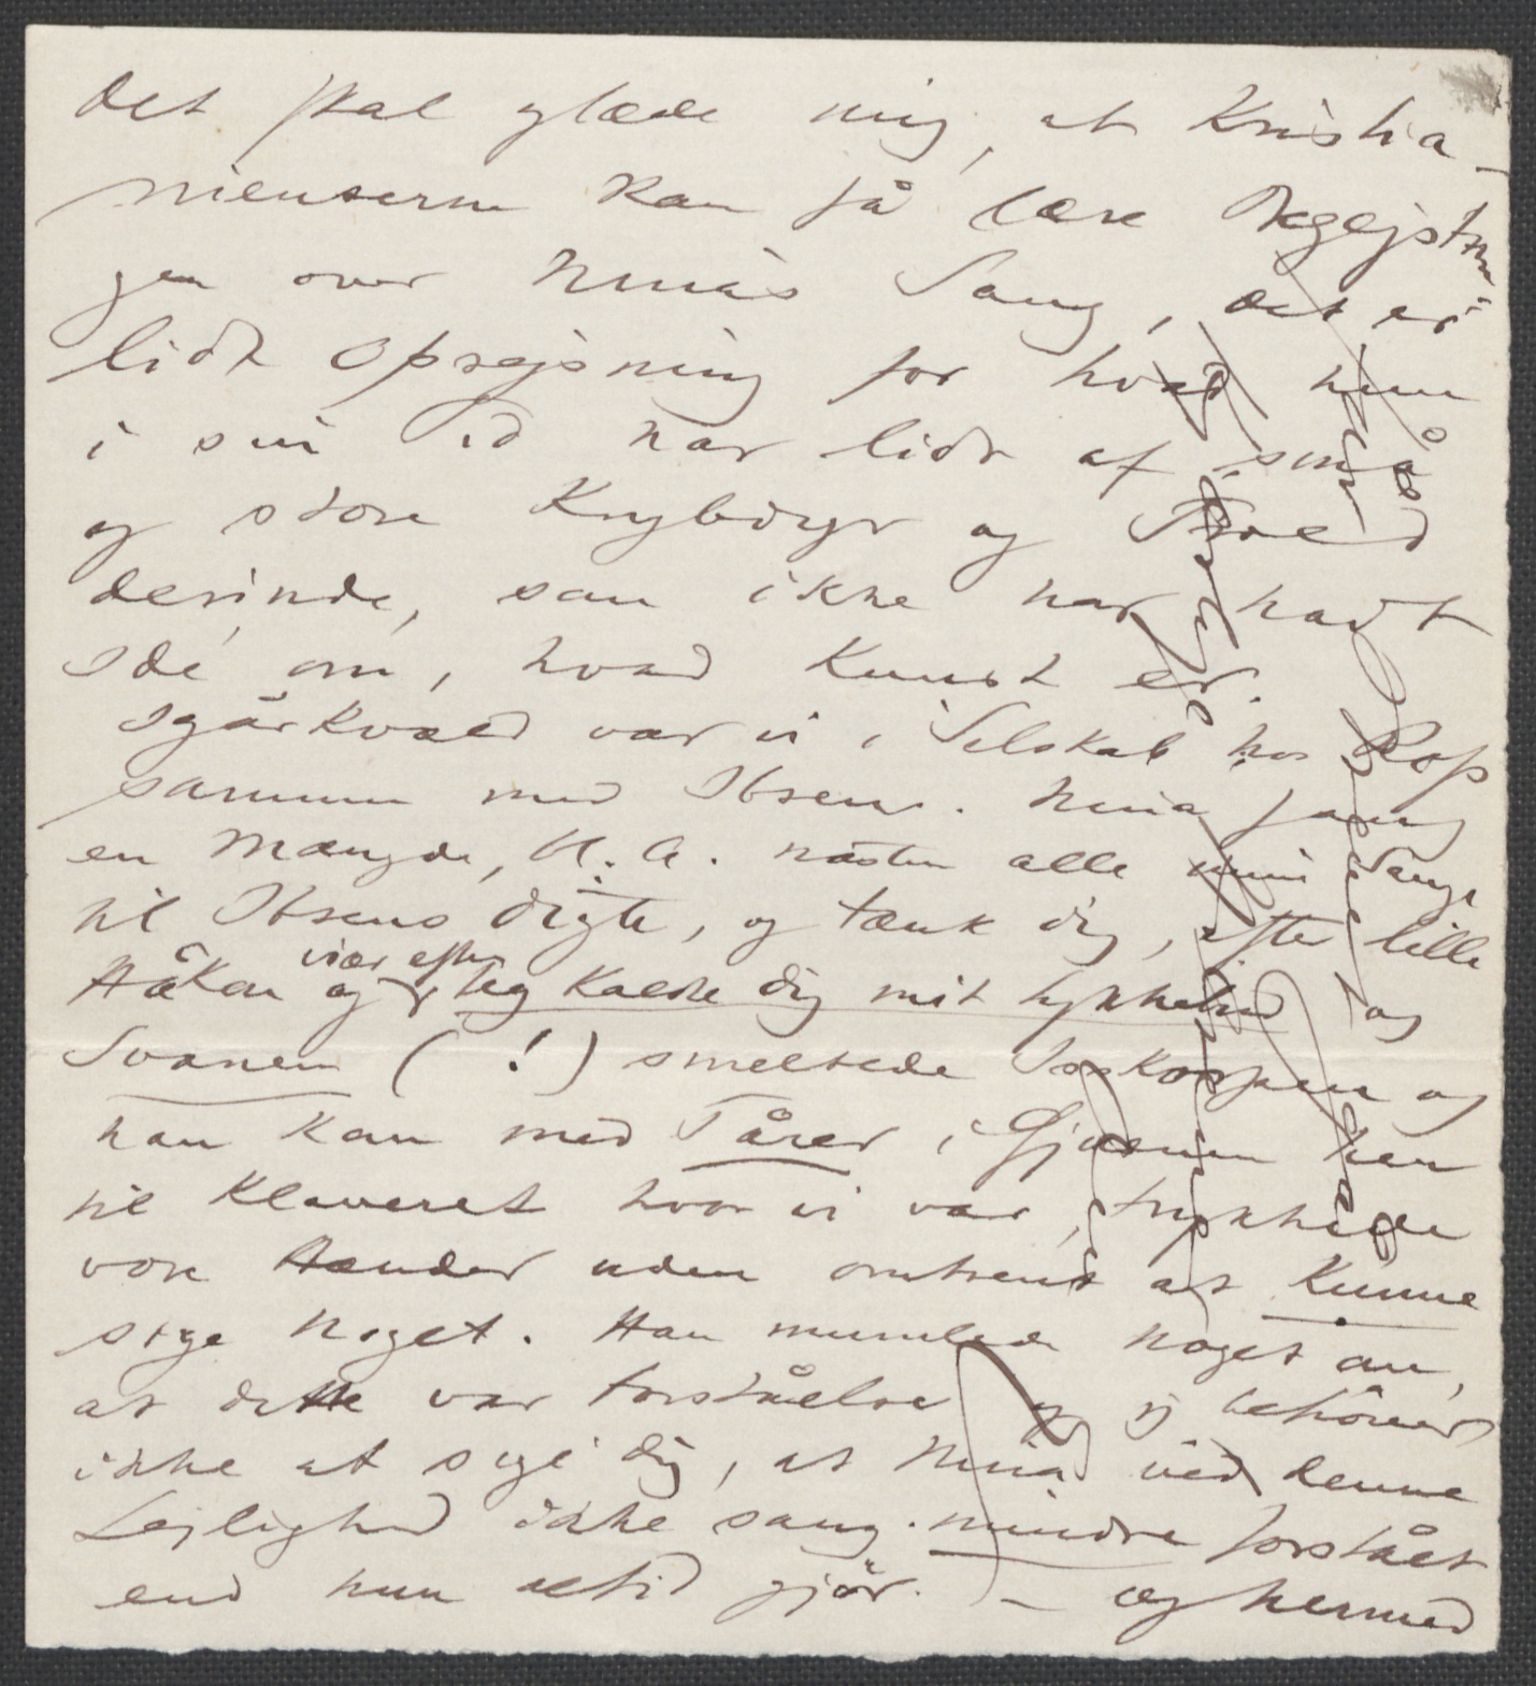 Det skal glæde mig, at Kristia-
nienserne kan få læse Begejstrin-
gen over Ninas Sang, det er
lidt Oprejsning for hvad hun
i sin Tid har lidt af små
og store Krybdyr og
derinde, som ikke har havt
Idé om, hvad Kunst er.
Igårkvæld var vi i Selskab hos Rop
sammen med Ibsens. Nina sang
en Mængde, bl. A. næsten alle mine Sange
til Ibsens Digte, og tænk dig, efter lille
Håkon og især efter Jeg kaldte dig mit Lykkebud og
Svanen (!) smeltede Iskorpen og
han kom med Tårer i Øjnene hen
til Klaveret hvor vi var, trykkede
vore Hænder uden omtrent at kunne
sige noget. Han mumlede noget om,
at dette var Forståelse og jeg behøver
ikke at sige dig, at Nina ved denne
Lejlighed ikke sang mindre forstået
end hun altid gjör. – Og hermed